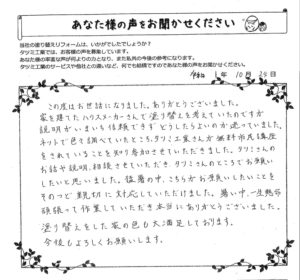 あなた様の声をお聞かせください
当社の塗り替えリフォームは、いかがでしたでしょうか?
タツミ工業では、お客様の声を募集しています。
あなた様の率直な声が何よりの力となり、また私共の今後の参考になります。
タツミ工業のサービスや他社との違いなど、何でも結構ですのであなた様の声をお聞かせください。
1年 10月 24日
この度はお世話になりました。ありがとうございました。
家を建てたハウスメーカーさんで塗り替えを考えていたのですが
説明がいまいち信頼できず どうしたらよいか迷っていました。
ネットで色々調べていたところ、タツミ工業さんが無料市民講座
をされていることを知り参加させていただきました。タツミさんの
お話や説明、相談させていただき、タツミさんのところでお願い
したいと思いました。猛暑の中、こちらがお願いしたいことを
そのつど親切に対応していただけました。暑い中、一生懸命
頑張って作業していただき本当にありがとうございました。
塗り替えをした家の色も大満足しております。
今後もよろしくお願いします。